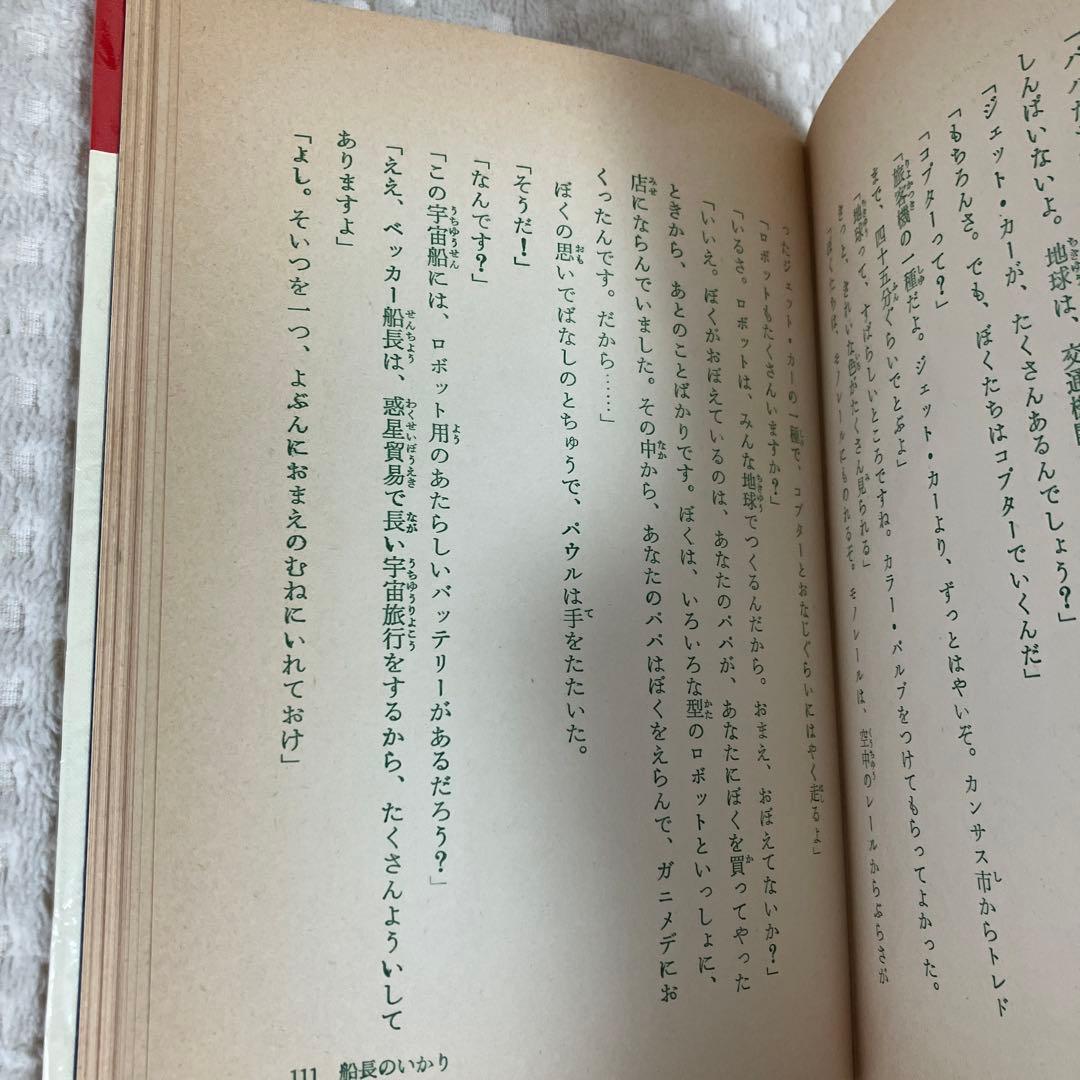 しんぱいないよ。地球は、交通機関
「ジェット・カーが、たくさんあるんでしょう？」
「もちろんさ。でも、ぼくたちはコプターでいくんだ」
「コプターって？」
「旅客機の一種だよ。ジェット・カーより、ずっとはやいぞ。カンサス市からトレド
まで、四十五分ぐらいでとぶよ」
「地球って、すばらしいところですね。カラー・バルブをつけてもらってよかった。
きっと、きれいな色がたくさん見られる」
「ぼくたちは、モノレールにものれるぞ。モノレールは、空中のレールからぶらさが
ったジェット・カーの一種で、コプターとおなじぐらいにはやく走るよ」
「ロボットもたくさんいますか？」
「いるさ。ロボットは、みんな地球でつくるんだから。おまえ、おぼえてないか？」
「いいえ。ぼくがおぼえているのは、あなたのパパが、あなたにぼくを買ってやった
ときから、あとのことばかりです。ぼくは、いろいろな型のロボットといっしょに、
店にならんでいました。その中から、あなたのパパはぼくをえらんで、ガニメデにお
くったんです。だから……」
ぼくの思いでばなしのとちゅうで、パウルは手をたたいた。
「そうだ！」
「なんです？」
「この宇宙船には、ロボット用のあたらしいバッテリーがあるだろう？」
「ええ、ベッカー船長は、惑星貿易で長い宇宙旅行をするから、たくさんよういして
ありますよ」
「よし。そいつを一つ、よぶんにおまえのむねにいれておけ」
111 船長のいかり